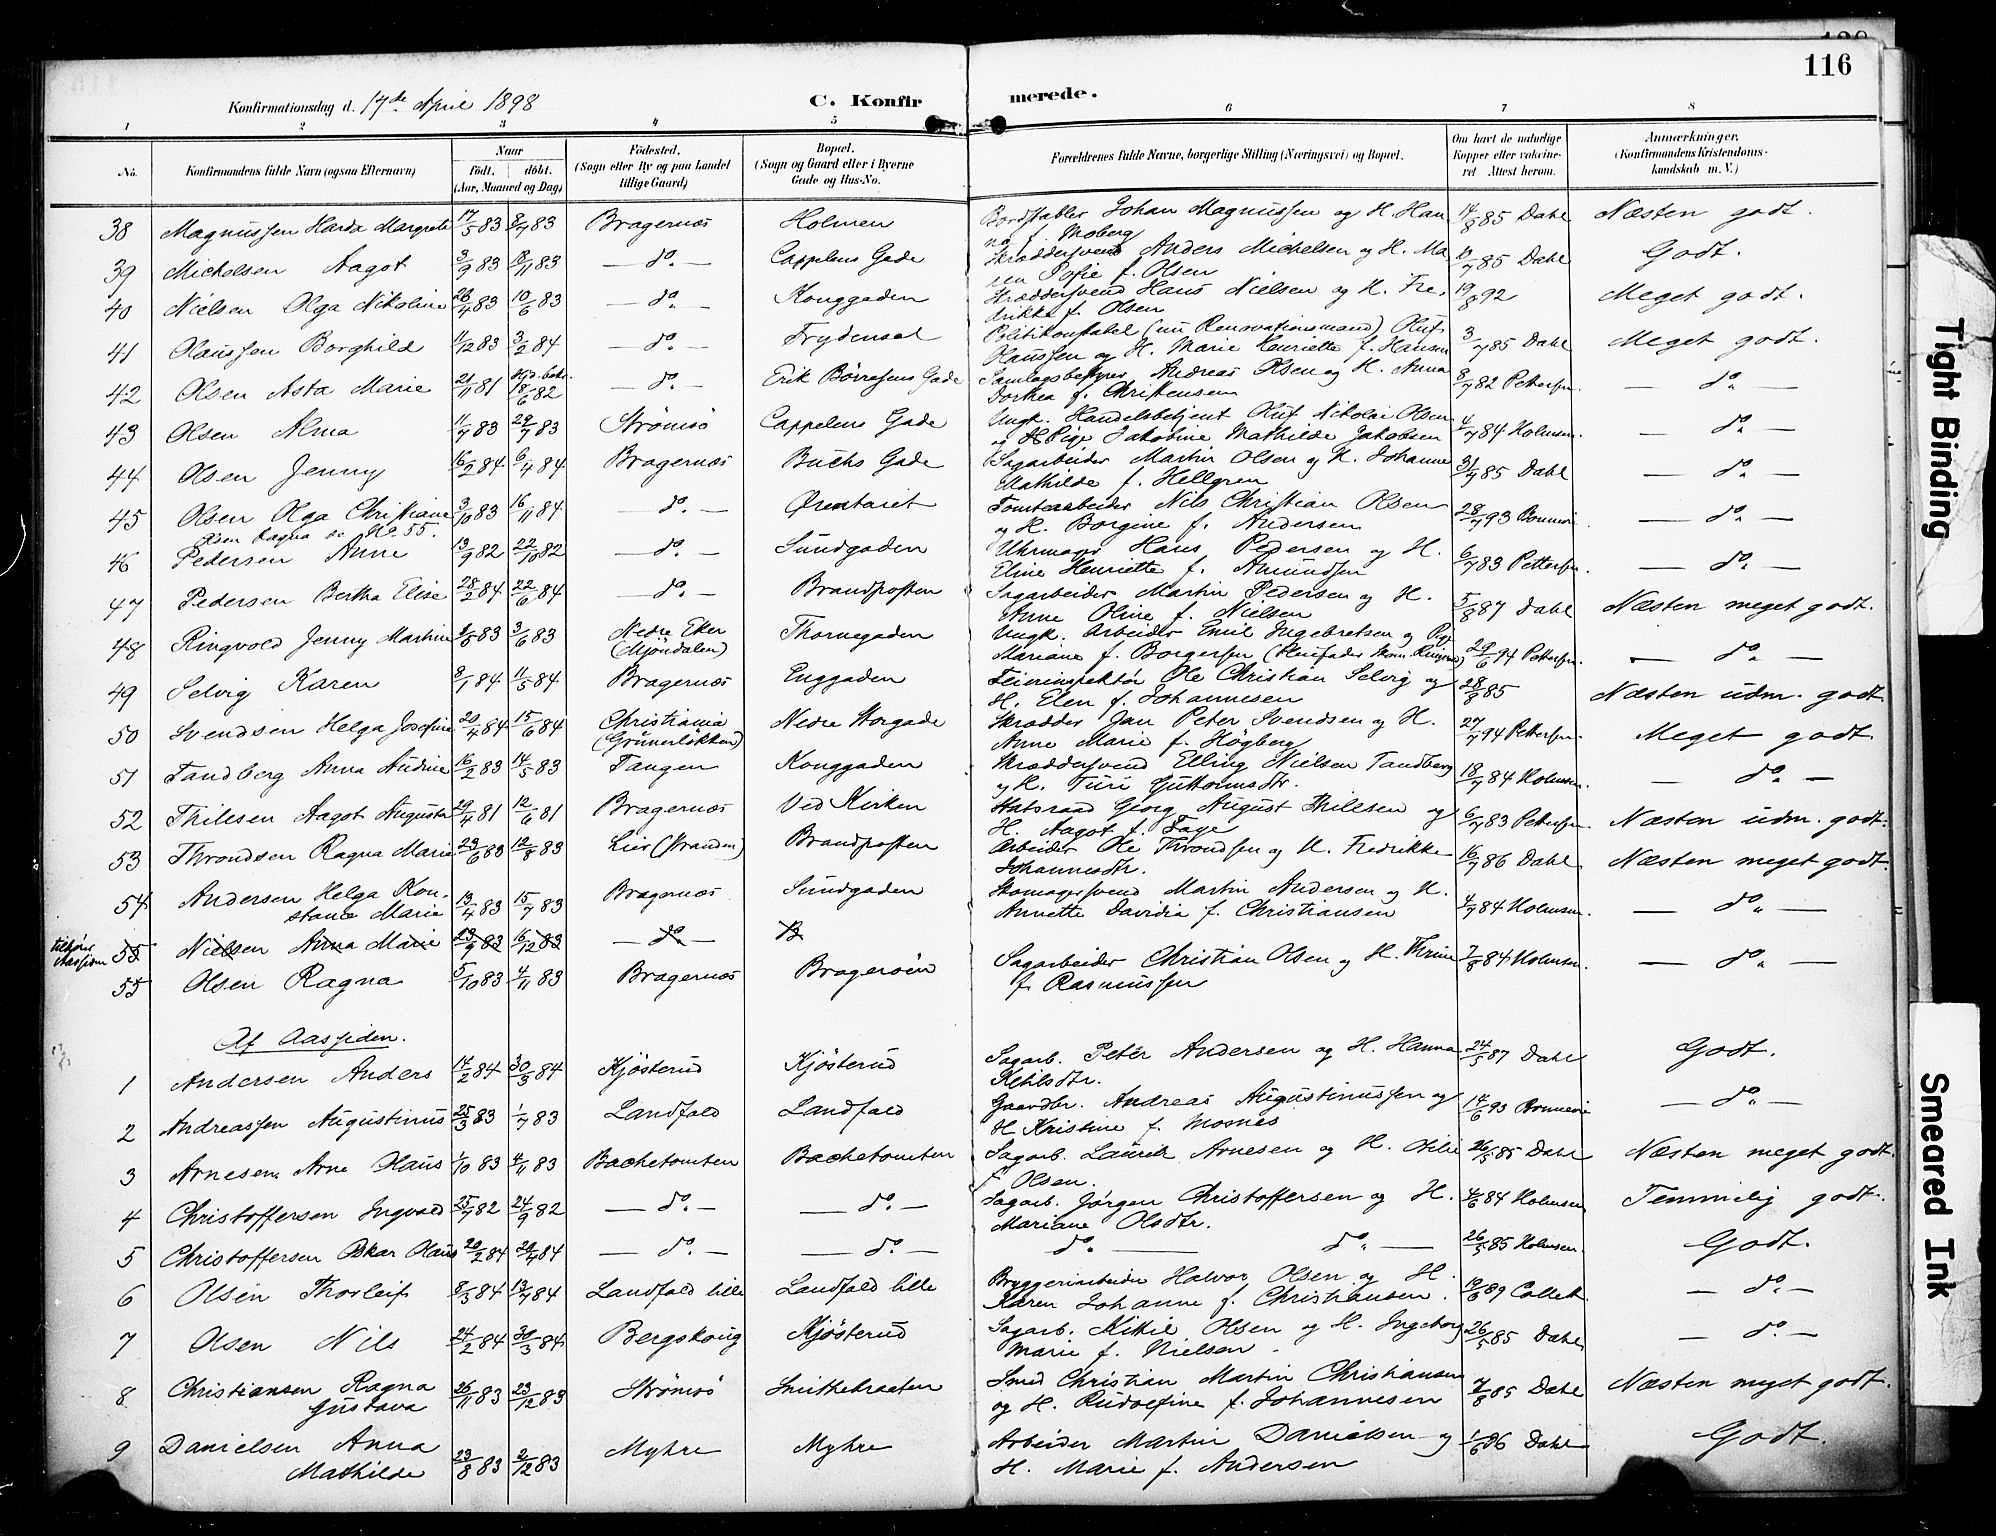 116
Konfirmationsdag d. 17de April 1898 C. Konfir merede.
1 2 3 4 5 6 7 8
No. Konfirmandens fulde Navn (ogsaa Efternavn) Naar født. døbt. (Aar, Maaned og Dag) Fødested. (Sogn eller By og paa Landet tillige Gaard) Bopæl. (Sogn og Gaard eller i Byerne Gade og Hus-No. Forældrenes fulde Navne, borgerlige Stilling (Næringsvei) og Bopæl. Om havt de naturlige Kopper eller vakcineret Attest herom. Anmærkninger. (Konfirmandens Kristendomskundskab m. V.)
38 Magnussen Harda Margrete 17/5 83 8/7 83 Bragernæs Holmen Bordstabler Johan Magnussen og H. Han 14/8 85 Dahl Næsten godt.
na f. Moberg
39 Michelsen Aagot 3/9 83 18/11 83 do. Cappelens Gade Skræddersvend Anders Michelsen og H. Ma 10/7 85 Dahl Godt.
ren Sofie f. Olsen
40 Nielsen Olga Nikoline 26/4 83 10/6 83 do. Konggaden Skræddersvend Hans Nielsen og H. Fre, 19/8 92 Meget godt.
drikke f. Olsen
41 Olaussen Borghild 11/12 83 3/2 84 do. Frydensal Politikonstabel (nu Renovationsmand) Oluf 3/7 85 Dahl Meget godt.
Olaussen og H. Marie Henriette f. Hansen
42 Olsen Asta Marie 21/11 81 18/6 82 do. Erik Børresens Gade Samlagsbestyrer Andreas Olsen og H. Anna 8/7 82 Pettersen. do.
Dorthea f. Christensen
43 Olsen Alma 11/7 83 29/7 83 Strømsø Cappelens Gade Ungk. Handelsbetjent Oluf Nikolai Olsen 4/7 84 Holmsen. do.
og Pige Jakobine Mathilde Jakobsen
44 Olsen Jenny 16/2 84 6/4 84 Bragernæs Buchs Gade Sagarbeider Martin Olsen og H. Johanne 31/7 85 Dahl do.
Mathilde f. Hellgren
45 Olsen Olga Christiane 3/10 83 16/11 84 do. Ørentaret Tomtearbeider Nils Christian Olsen 28/7 93 Bonnevie do.
Olsen Ragna se No. 55. og H. Borgine f. Andersen
46 Pedersen Anne 13/9 82 22/10 82 do. Sundgaden Uhrmager Hans Pedersen og H. 6/7 83 Pettersen. do.
Eline Henriette f. Amundsen
47 Pedersen Bertha Elise 28/2 84 22/6 84 do. Brandposten Sagarbeider Martin Pedersen og H. 5/8 87 Dahl Næsten meget godt.
Anne Oline f. Nielsen
48 Ringvold Jenny Martine 3/6 83 Nedre Eker (Mjøndalen) Thornegaden Ungk. Arbeider Emil Ingebretsen og Pige 29/6 94 Pettersen. do.
Mariane f. Borgersen
49 Selvig Karen 8/1 84 11/5 84 Bragernæs Enggaden Feierinspektør Ole Christian Selvig og 28/8 85 Næsten udm. godt
H. Elen f. Johannesen
50 Svendsen Helga Josefine 20/4 84 15/6 84 Christiania (Grünerløkken) Nedre Storgade Skrædder Jan Peter Svendsen og H. 27/7 94 Pettersen. Meget godt
Anne Marie f. Høgberg
51 Tandberg Anna Andrine 16/2 83 14/5 83 Tangen Konggaden Skræddersvend Elling Nielsen Tandberg 18/7 84 Holmsen. do.
og H. Turi Guttormsdtr.
52 Thilesen Aagot Augusta 29/4 81 12/6 81 Bragernæs Ved Kirken Statsraad Georg August Thilesen og 6/7 83 Pettersen Næsten udm. godt.
H. Aagot f. Faye
53 Throndsen Ragna Marie 29/6 83 12/8 83 Lier (Stranden) Brandposten Arbeider Ole Throndsen og H. Fredrikke 16/7 86 Dahl Næsten meget godt.
Johannesdtr.
54 Andersen Helga Kon. 13/4 83 15/7 83 Bragernæs Sundgaden Skomagersvend Martin Andersen og H. 4/7 84 Holmsen. do.
stance Marie Annette Davidia f. Christiansen
tilhører Aassiden 55 Nielsen Anna Marie 23/9 83 16/12 83 do. B
55 Olsen Ragna 5/10 83 4/11 83 Bragernæs Bragerøen Sagarbeider Christian Olsen og H. Thrine 7/8 84 Holmsen. do.
f. Rasmussen
Af Aassiden.
1 Andersen Anders 14/2 84 30/3 84 Kjøsterud Kjøsterud Sagarb. Peter Andersen og H. Hanna 24/5 87 Dahl Godt.
Ketilsdtr.
2 Andreassen Augustinus 25/3 83 1/7 83 Landfald Landfald Gaardbr. Andreas Augustinussen og 14/6 93 Bonnevie do.
H Kristine f. Mosnes
3 Arnesen Arne Olaus 1/10 83 4/11 83 Bachetomten Bachetomten Sagarb. Laurits Arnesen og H. Otilie 26/5 85 Dahl Næsten meget godt.
f Olsen.
4 Christoffersen Ingvald 25/7 82 24/9 82 do. do. Sagarb. Jørgen Christoffersen og H. 4/6 84 Holmsen Temmelig godt.
Mariane Olsdtr.
5 Christoffersen Oskar Olaus 20/2 84 20/4 84 do. do. do. do. 26/5 85 Holmsen. Godt.
6 Olsen Thorleif 8/3 84 13/4 84 Landfald lille Landfald lille Bryggeriarbeider Halvor Olsen og H. 19/6 89 Collett. do.
Karen Johanne f. Christiansen.
7 Olsen Nils 24/2 84 30/3 84 Bergskoug Kjøsterud Sagarb. Kittil Olsen og H. Ingeborg 26/5 85 Dahl do.
Marie f. Nielsen.
8 Christiansen Ragna 26/11 83 23/12 83 Strømsø Smithebraaten Smed Christian Martin Christiansen 7/8 85 Dahl Næsten meget godt.
Gustava og H. Rudolfine f. Johannesen
9 Danielsen Anna 23/8 83 2/12 83 Myhre Myhre Arbeider Martin Danielsen og 1/6 86 Dahl Godt.
Mathilde H. Marie f. Andersen
Tight Binding
Smeared Ink